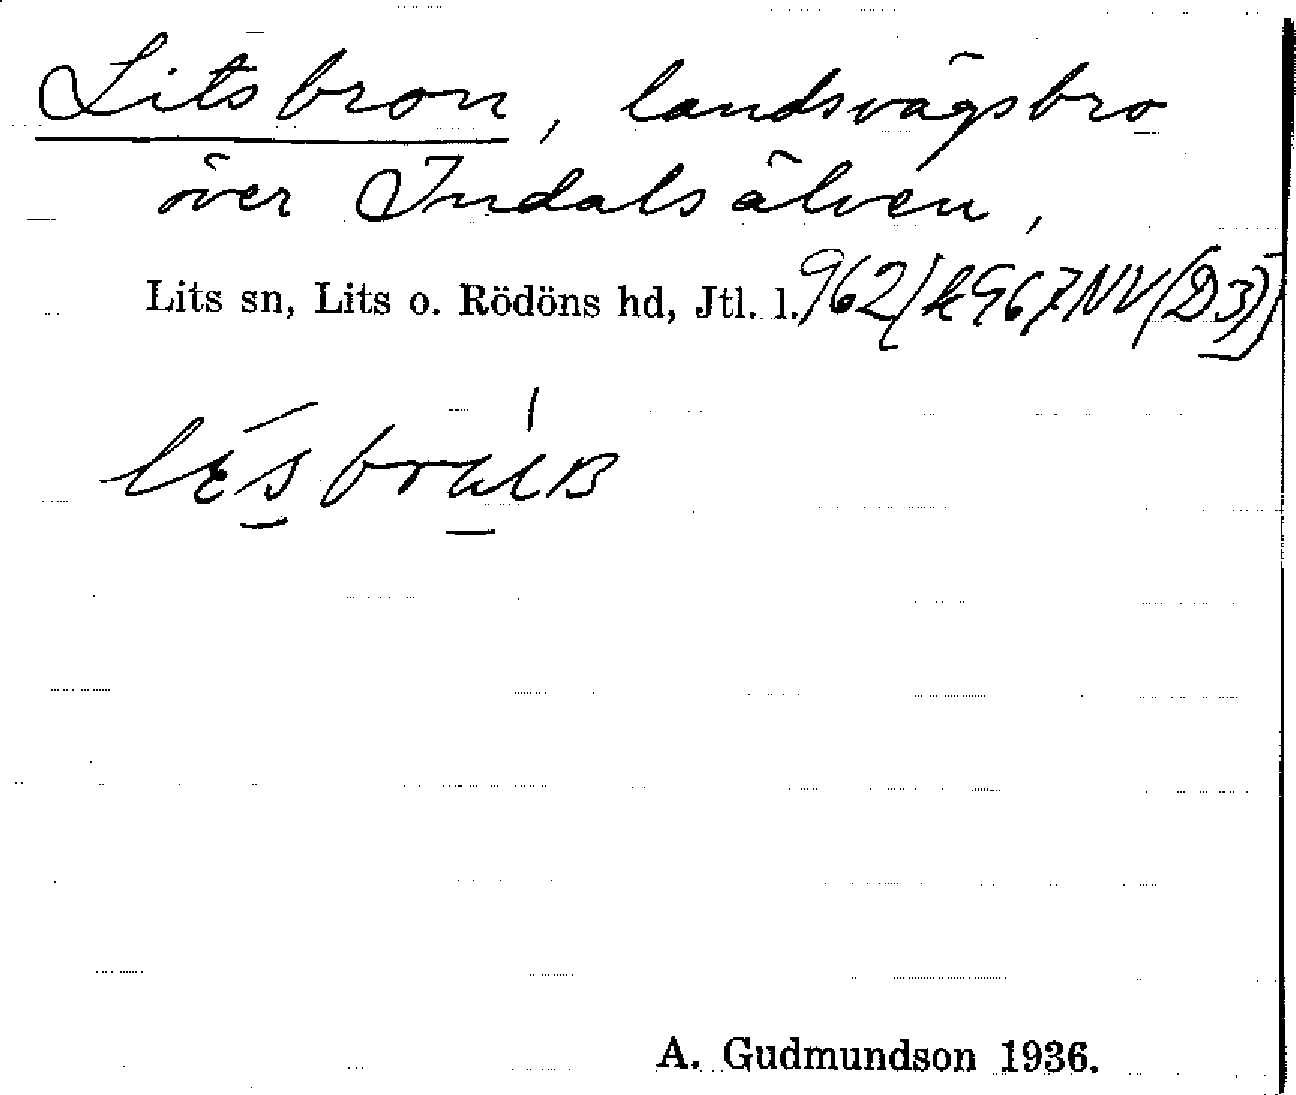 Litsbron, landsvägsbro
över Indalsälven,
Lits sn, Lits o. Rödöns hd, Jtl. l.
A. Gudmundson 1936.